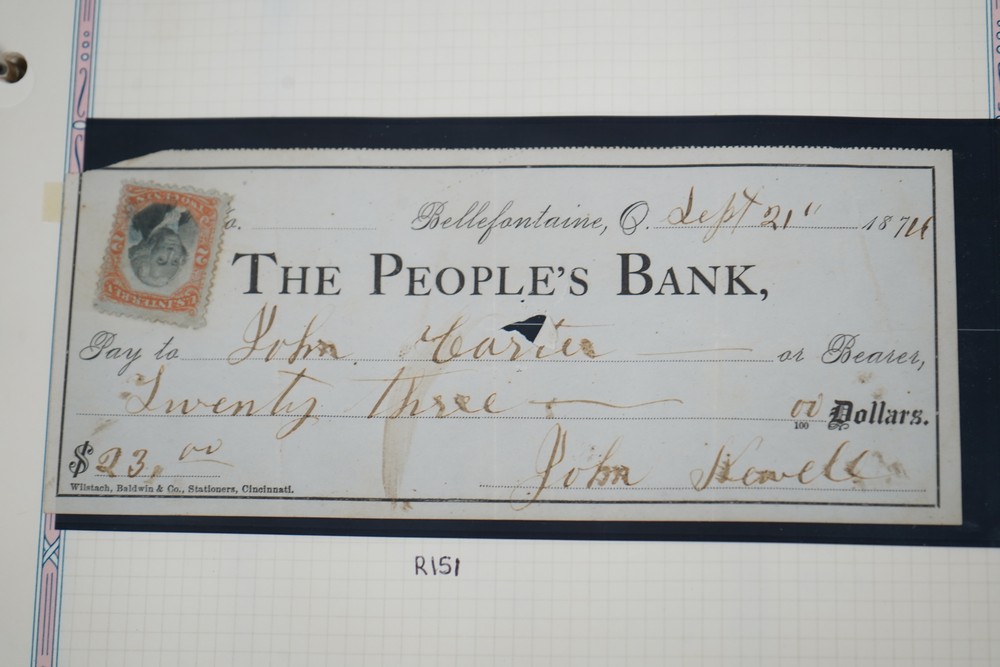 o. Bellefontaine, O. Sept 21" 187
THE PEOPLE'S BANK,
Pay to John Carter or Bearer,
Twenty three 00/100 Dollars.
$23,00 John
Wilstach, Baldwin & Co., Stationers, Cincinnati.
R151